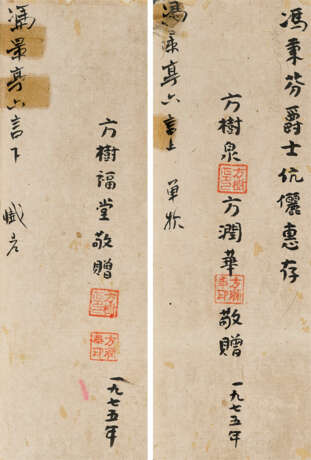 馮秉芬爵士伉儷惠存
方樹泉 方潤華 敬贈
一九七五年
馮景亭六言上 单款
方樹福堂敬贈
一九七五年
馮景亭六言下